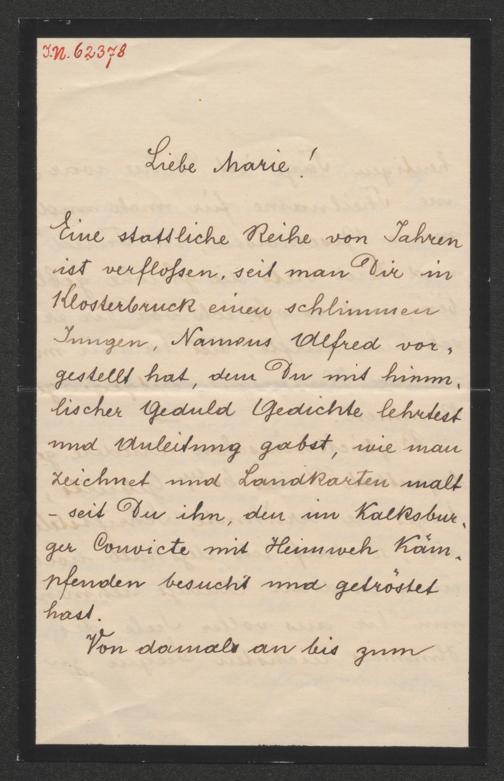 I.N. 62378
Liebe Marie!
Eine stattliche Reihe von Jahren
ist verfloßen, seit man Dir in
Klosterbruck einen schlimmen
Jungen, Namens Alfred vor-
gestellt hat, dem Du mit himm-
lischer Geduld Gedichte lehrtest
und Anleitung gabst, wie man
zeichnet und Landkarten malt
– seit Du ihn, den im Kalksbur-
ger Convicte mit Heimweh Käm-
pfenden besucht und getröstet
hast.
Von damals an bis zum